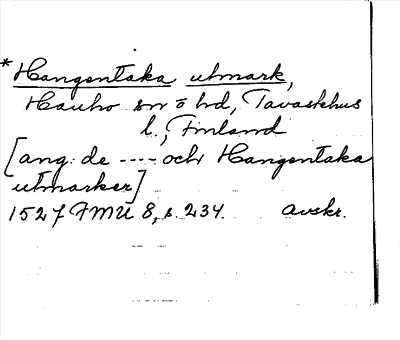 *Hangentaka utmark,
Hauho sn o hd, Tavastehus
l., Finland
[ang. de ---- och Hangentaka
utmarker]
1527 FMU 8, s. 234. Avskr.